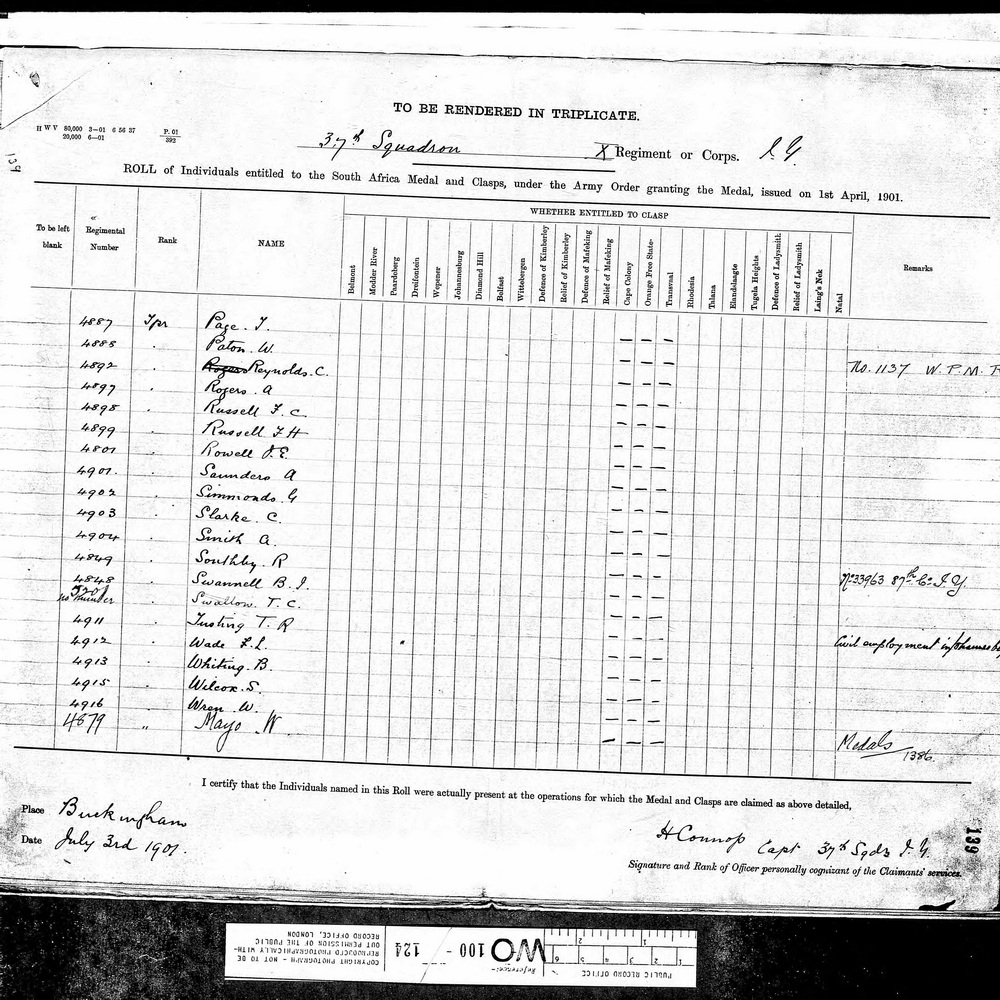 TO BE RENDERED IN TRIPLICATE.
H W V 80,000 3—01 6 56 37 P. 01
20,000 6—01 392
139
37th Squadron X Regiment or Corps. I.Y.
ROLL of Individuals entitled to the South Africa Medal and Clasps, under the Army Order granting the Medal, issued on 1st April, 1901.
To be left blank
Regimental Number
Rank
NAME
WHETHER ENTITLED TO CLASP
Belmont
Modder River
Paardeberg
Dreifontein
Wepener
Johannesburg
Diamond Hill
Belfast
Wittebergen
Defence of Kimberley
Relief of Kimberley
Defence of Mafeking
Relief of Mafeking
Cape Colony
Orange Free State
Transvaal
Rhodesia
Talana
Elandslaagte
Tugela Heights
Defence of Ladysmith
Relief of Ladysmith
Laing's Nek
Natal
Remarks
4887 Tpr Page. J.
4888 . Paton. W. — — —
4892 . Rogers Reynolds. C. — — — No. 1137 W. P. M. F
4897 . Rogers. A — — —
4898 . Russell F. C. — — —
4899 . Russell F H — — —
4801 . Rowell J. E. — — —
4901. . Saunders A — — —
4902 . Simmonds. G — — —
4903 . Slarke. C. — — —
4904 . Smith A. — — —
4849 . Southby. R — — —
4848 . Swannell B. I. — — — No 33963 87th Co I.Y.
no number . Swallow. T. C. — — —
4911 . Tusting T. R — — —
4912 . Wade F. L. — — — Civil employment in Johannesb
4913 . Whiting. B. — — —
4915 . Wilcox. S. — — —
4916 . Wren. W. — — —
4879 " Mayo W. — — —
Medals
1386
I certify that the Individuals named in this Roll were actually present at the operations for which the Medal and Clasps are claimed as above detailed,
Place Buckingham
Date July 3rd 1901.
H Connop Capt 37th Sqdn I.Y.
Signature and Rank of Officer personally cognizant of the Claimants' services.
139
PUBLIC RECORD OFFICE
1 2 3 4 5 6
1 2
Reference:-
WO 100 - 124
COPYRIGHT PHOTOGRAPH - NOT TO BE
REPRODUCED PHOTOGRAPHICALLY WITH-
OUT PERMISSION OF THE PUBLIC
RECORD OFFICE, LONDON